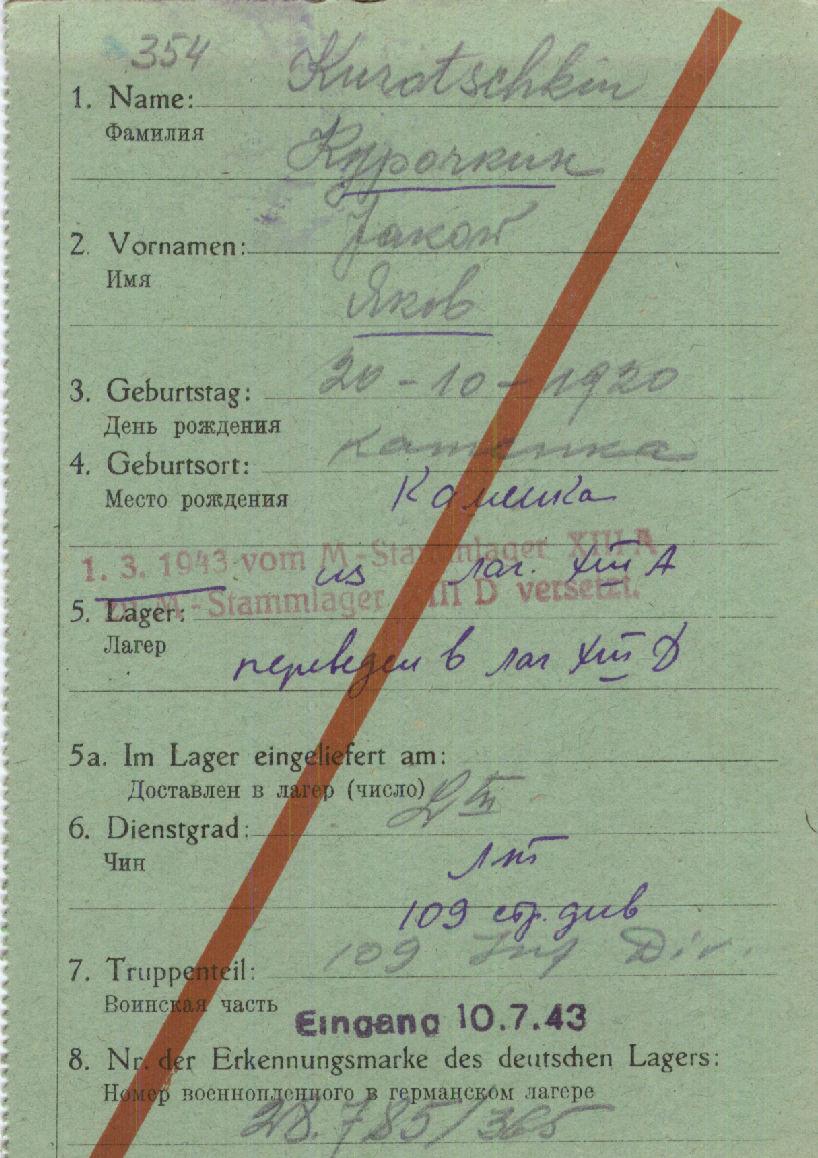 354
Kurotschkin
1. Name:
Фамилия
Курочкин
Jakow
2. Vornamen:
Имя
Яков
20-10-1920
3. Geburtstag:
День рождения
Kamenka
4. Geburtsort:
Место рождения
Каменка
1. 3. 1943 vom M-Stammlager XIII A
из лаг. XIII A
zu M.-Stammlager XIII D versetzt.
5. Lager:
Лагерь
переведен в лаг XIII D
5a. Im Lager eingeliefert am:
Доставлен в лагерь (число)
6. Dienstgrad:
Чин
Лт
109 стр. див
109 Inf Div.
7. Truppenteil:
Воинская часть
Eingang 10.7.43
8. Nr. der Erkennungsmarke des deutschen Lagers:
Номер военнопленного в германском лагере
28.785/365